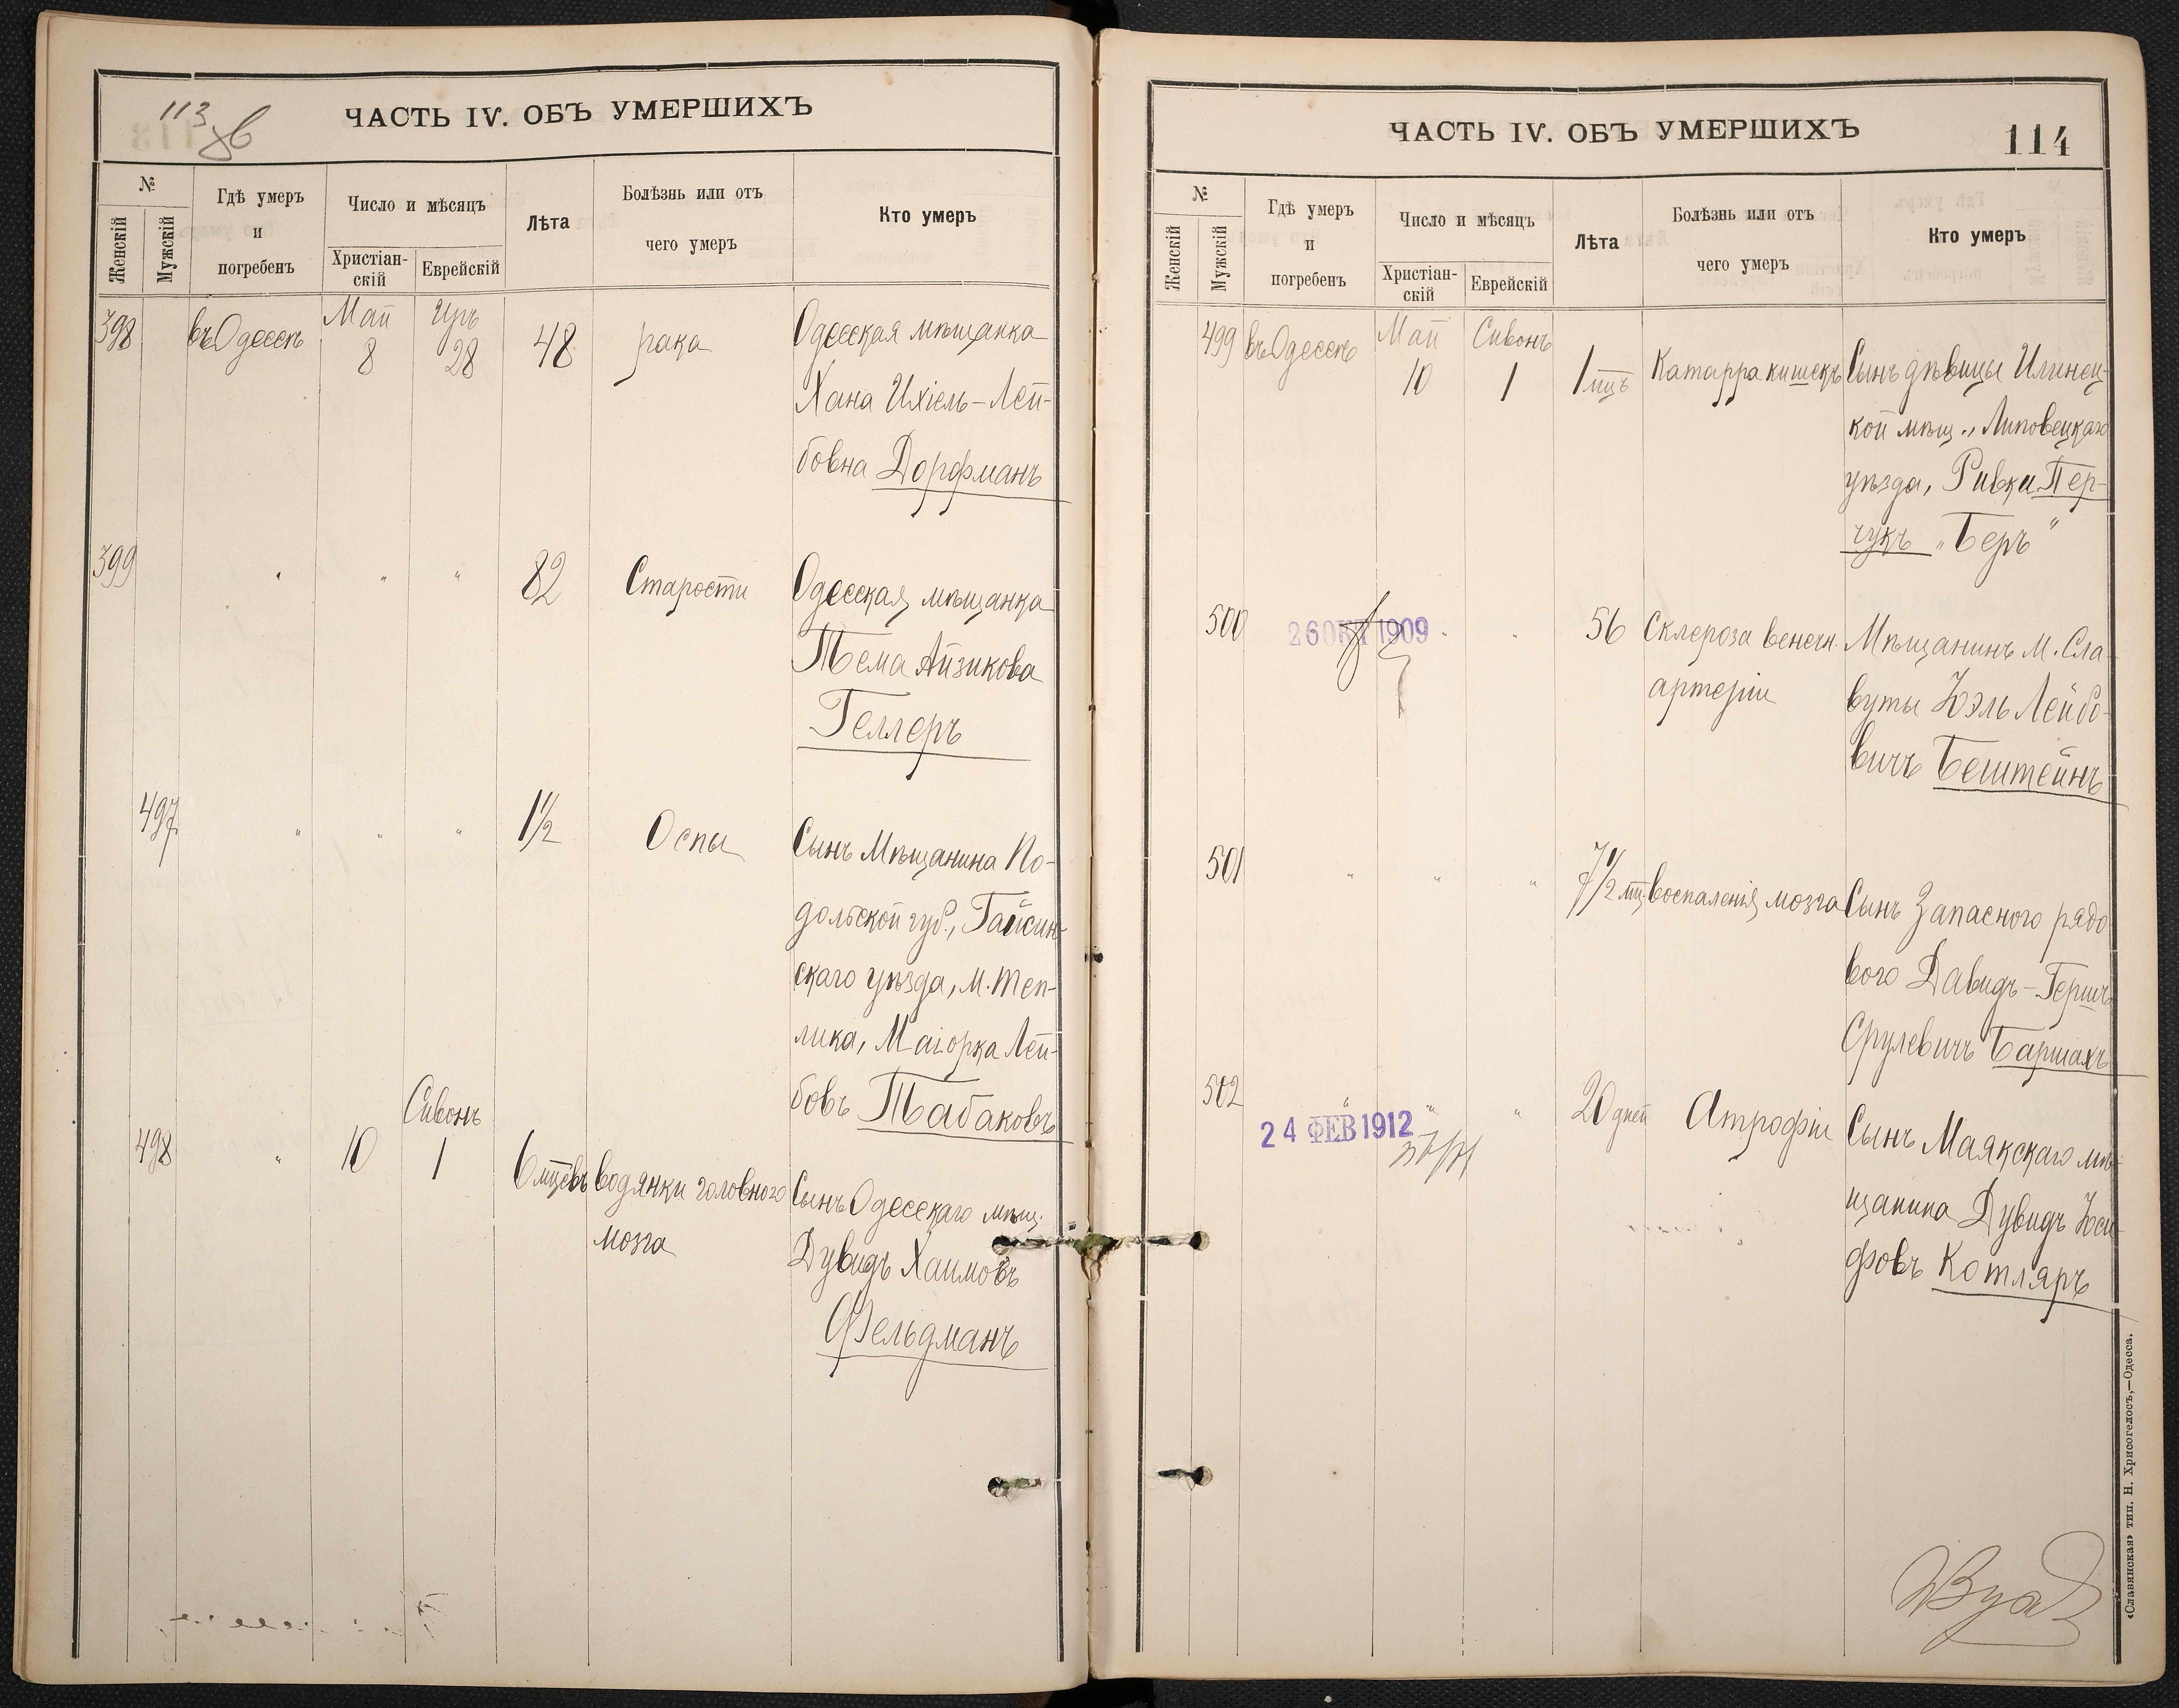 113 об
ЧАСТЬ IV. ОБЪ УМЕРШИХЪ
№
Женскій
Мужскій
Гдѣ умеръ
и
погребенъ
Число и мѣсяцъ
Христіан-
скій
Еврейскій
Лѣта
Болѣзнь или отъ
чего умеръ
Кто умеръ
398
въ Одессѣ
Май
8
Иръ
28
48
рака
Одесская мѣщанка
Хана Ихіель-Лей-
бовна Дорфманъ
399 " " "
82
Старости
Одесская мѣщанка
Тема Айзикова
Геллеръ
497 " " "
1½
Оспы
Сынъ Мѣщанина По-
дольской губ., Гайсин-
скаго уѣзда, М. Теп-
лика, Маіорка Лей-
бовъ Табаковъ
498 "
10
Сивонъ
1
6 мцевъ
водянки головного
мозга
Сынъ Одесскаго мѣщ.
Дувидъ Хаимовъ
Фельдманъ
ЧАСТЬ IV. ОБЪ УМЕРШИХЪ
114
№
Женскій
Мужскій
Гдѣ умеръ
и
погребенъ
Число и мѣсяцъ
Христіан-
скій
Еврейскій
Лѣта
Болѣзнь или отъ
чего умеръ
Кто умеръ
499
въ Одессѣ
Май
10
Сивонъ
1
1 мцъ
Катарра кишекъ
Сынъ дѣвицы Илинец-
кой мѣщ., Липовецкаго
уѣзда, Ривки Пер-
чукъ „Беръ“
500
26 ОКТ 1909 " "
56
Склероза венечн.
артеріи
Мѣщанинъ М. Сла-
вуты Іоэль Лейбо-
вичъ Бештейнъ
501 " " "
7½ мц.
воспаленія мозга
Сынъ Запасного рядо
вого Давидъ-Гершъ
Срулевичъ Баршахъ
502 " " "
24 ФЕВ 1912
20 дней
Атрофіи
Сынъ Маякскаго мѣ-
щанина Дувидъ Іоси-
фовъ Котляръ
«Славянская» тип. Н. Хрисогелосъ,—Одесса.